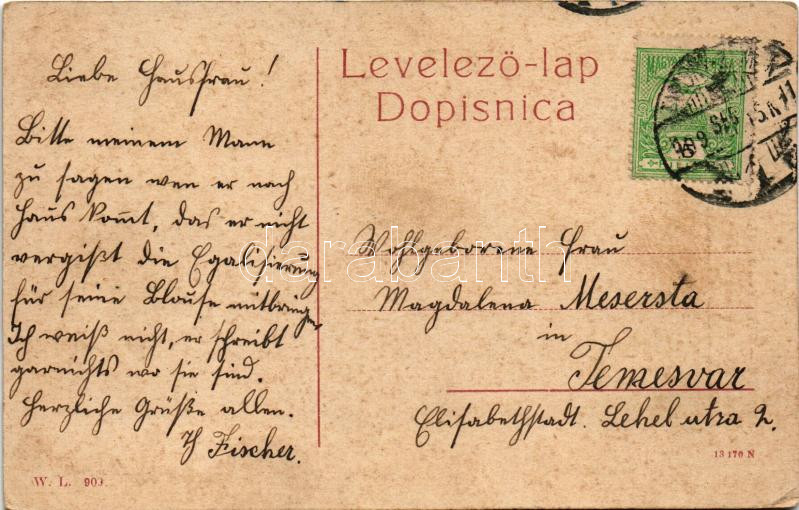 Liebe Hausfrau!
Bitte meinem Mann
zu sagen wen er nach
Haus kommt, das er nicht
vergißt die Egalisierung
für seine Blouse mitbringen
Ich weiß nicht, er schreibt
garnichts wo sie sind.
Herzliche Grüße allen.
Fischer.
W. L. 909.
Levelező-lap
Dopisnica
Wohlgeborene Frau
Magdalena Mesersta
in
Temesvar
Elisabethstadt. Lehel utza 2.
13170 N
darabanth